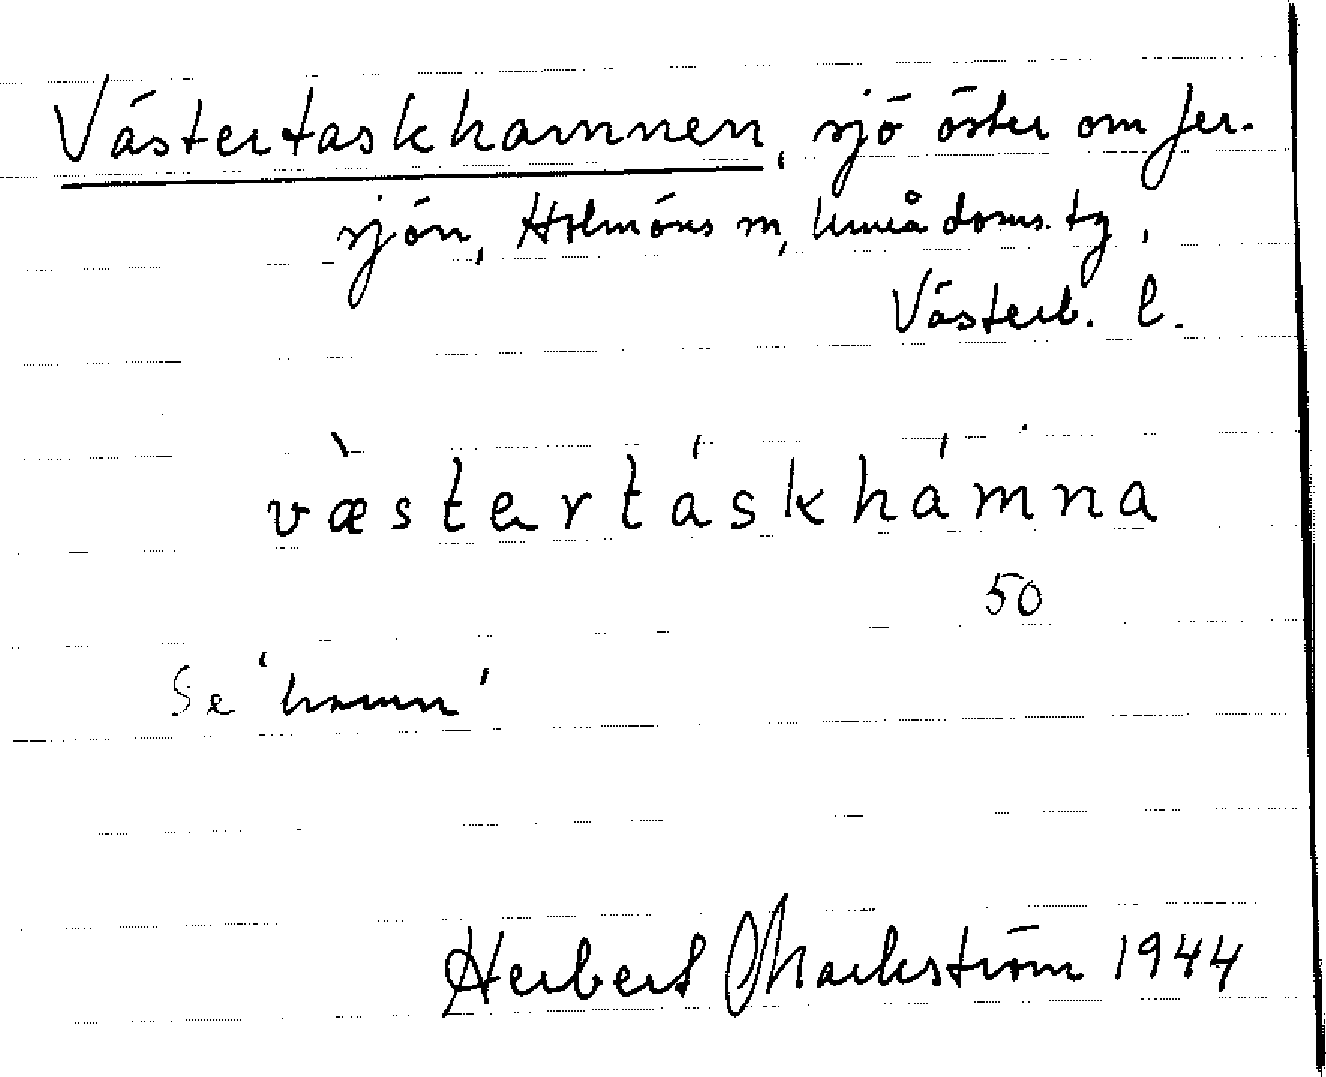 Västertaskhamnen, sjö öster om Jer-
sjön, Holmöns sn, Umeå doms. tg,
Västerb. l.
væ̀stertáskhámna
50
Se 'hamn'
Herbert Markström 1944